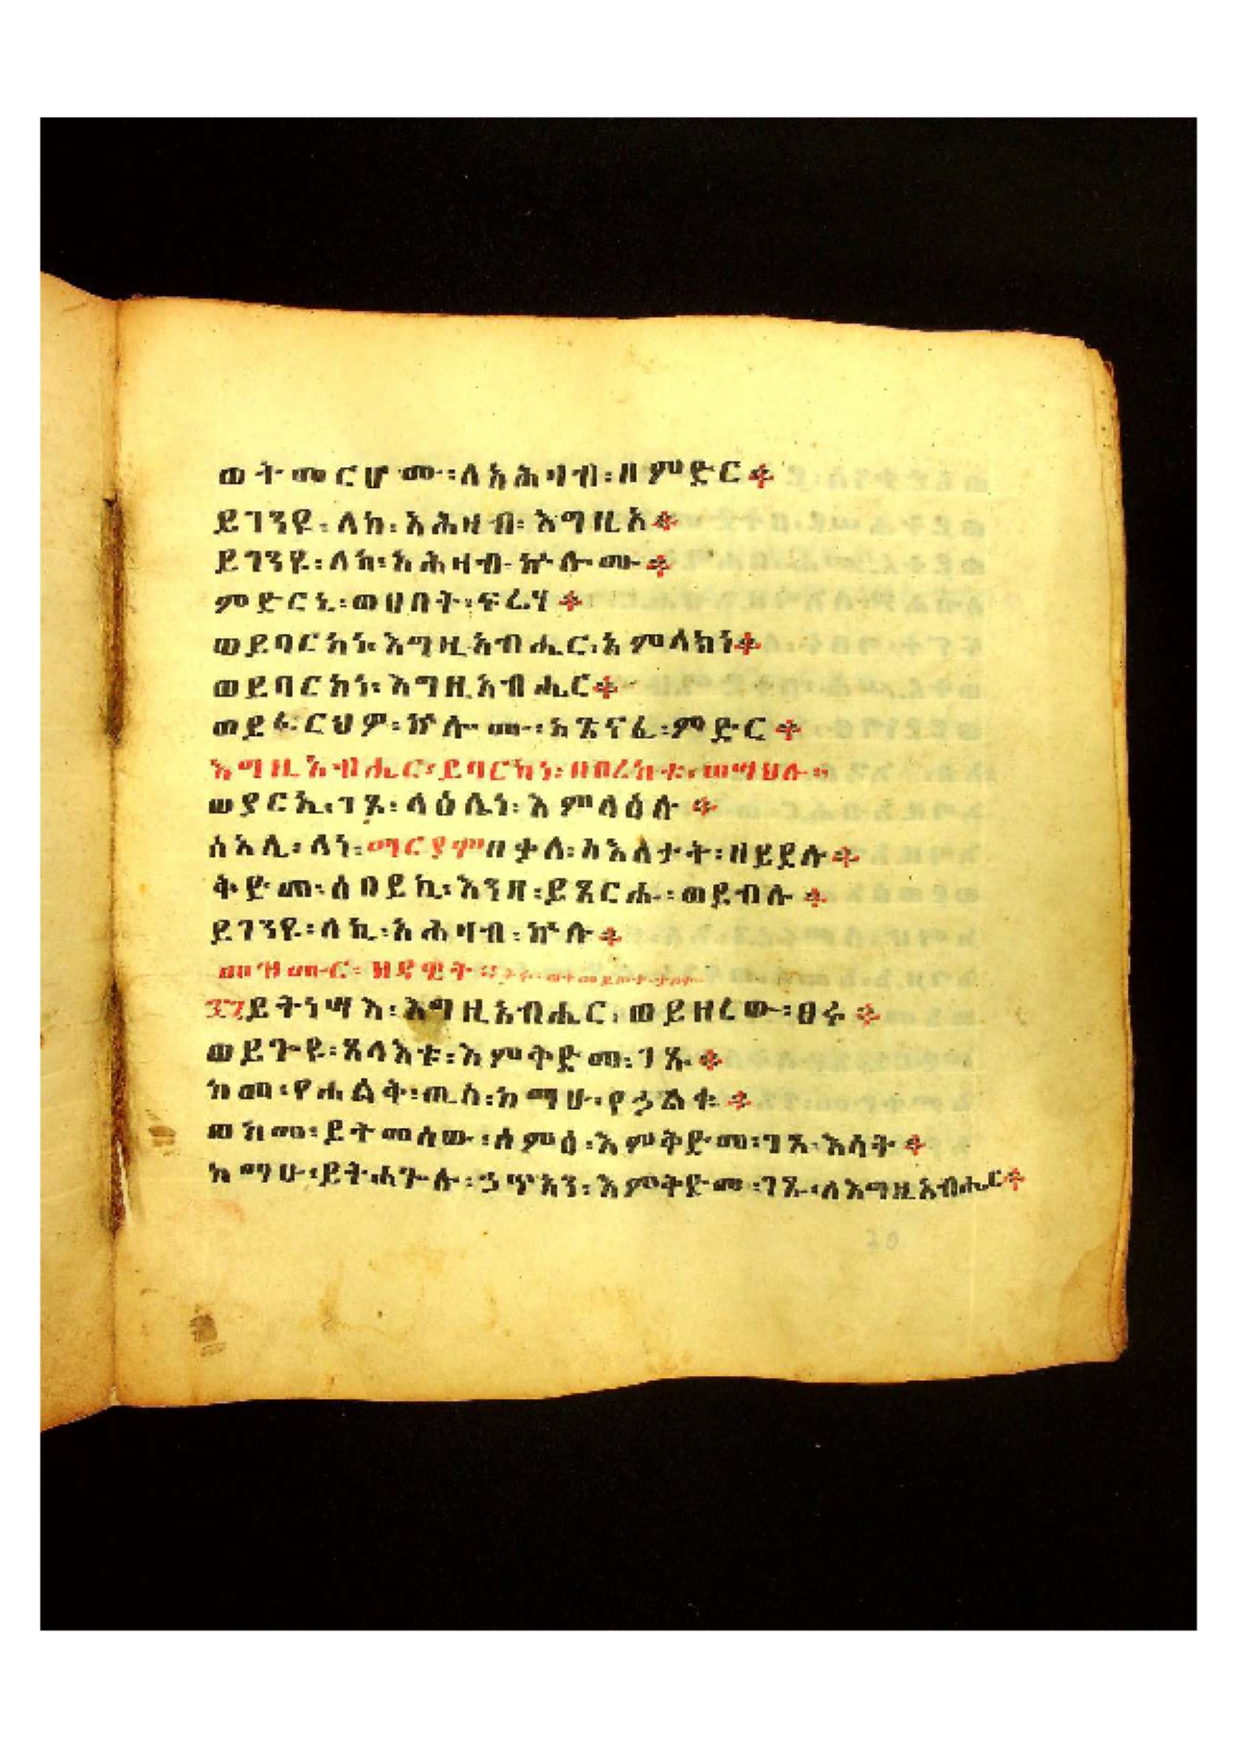 ወትመርሆሙ፡ለአሕዛብ፡ዘምድር፨
ይገንዩ፡ለከ፡አሕዛብ፡እግዚአ፨
ይገንዩ፡ለከ፡አሕዛብ፡ኵሎሙ፨
ምድርኒ፡ወሀበት፡ፍሬሃ፨
ወይባርከነ፡እግዚአብሔር፡አምላክነ፨
ወይባርከነ፡እግዚአብሔር፨
ወይፈርህዎ፡ኵሎሙ፡አጽናፈ፡ምድር፨
እግዚአብሔር፡ይባርከነ፡ዘበረከቱ፡ወሣህሉ።
ወያርኢ፡ገጾ፡ላዕሌነ፡እምላዕሉ፨
ሰአሊ፡ለነ፡ማርያም፡በቃለ፡አእላታት፡ዘይደሉ፨
ቅድመ፡ሰበይኪ፡እንዘ፡ይጼርሑ፡ወይብሉ፨
ይገንዩ፡ለኪ፡አሕዛብ፡ኵሉ፨
መዝሙር፡ዝዳዊት።
፷፯ይትነሣእ፡እግዚአብሔር፡ወይዘረው፡ፀሩ፨
ወይጕየ፡ጸላእቱ፡እምቅድመ፡ገጹ፨
ከመ፡የሐልቅ፡ጢስ፡ከማሁ፡የኃልቁ፨
ወከመ፡ይትመሰው፡ሰምዕ፡እምቅድመ፡ገጸ፡እሳት፨
ከማሁ፡ይትሐጐሉ፡ኃጥአን፡እምቅድመ፡ገጹ፡ለእግዚአብሔር፨